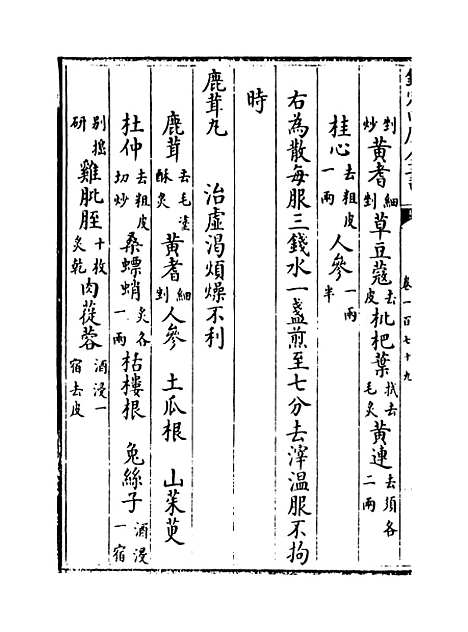 欽定四庫全書
卷一百七十九
剉炒黃耆細剉草豆蔻去皮枇杷葉拭去毛炙黃連去須各二兩
桂心去粗皮一兩人參一兩半
右為散每服三錢水一盞煎至七分去滓溫服不拘
時
鹿茸丸　治虛渴煩燥不利
鹿茸去毛塗酥炙黃耆細剉人參　土瓜根　山茱萸
杜仲去粗皮切炒桑螵蛸炙各一兩栝樓根　兔絲子酒浸一宿
別搗研雞肶胵十枚炙乾肉蓯蓉酒浸一宿去皮